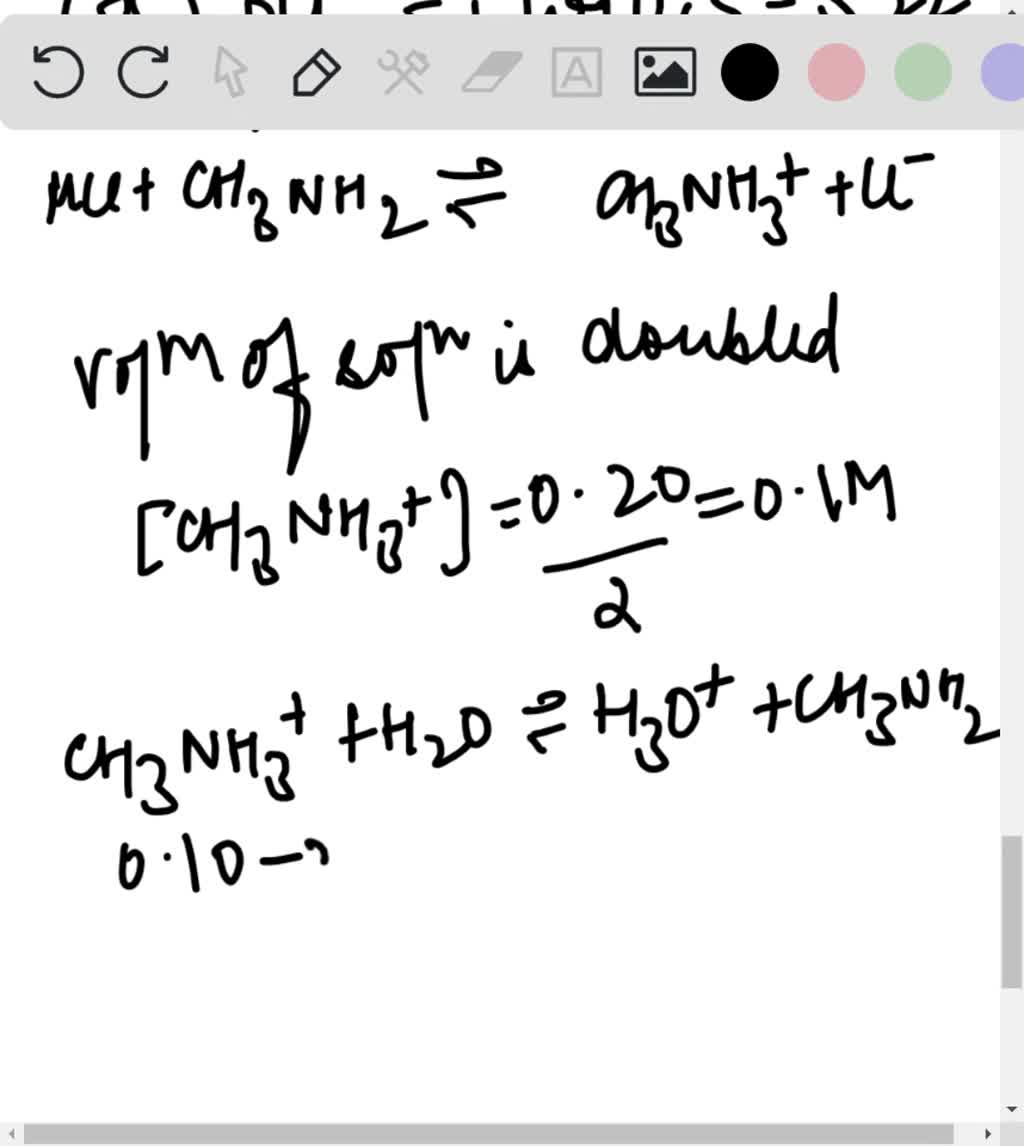 HCl + CH3NH2 ⇌ CH3NH3+ + Cl-
of is doubled
[CH3NH3+] = 0.20/2 = 0.1M
CH3NH3+ + H2O ⇌ H3O+ + CH3NH2
0.10 -